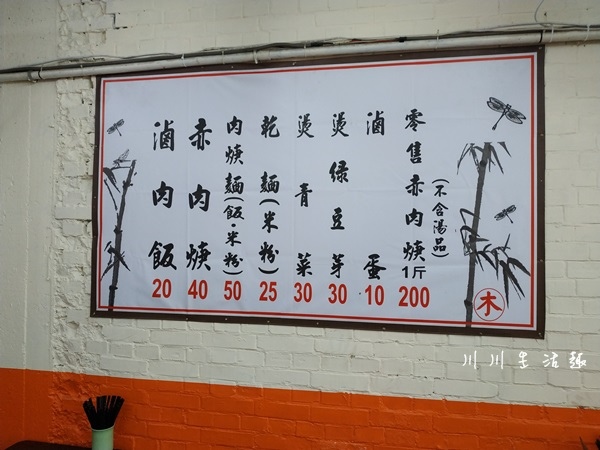 滷肉飯 20
赤肉焿 40
肉焿麵(飯·米粉) 50
乾麵(米粉) 25
燙青菜 30
燙綠豆芽 30
滷蛋 10
零售赤肉焿1斤 200
(不含湯品)
木
川川生活趣